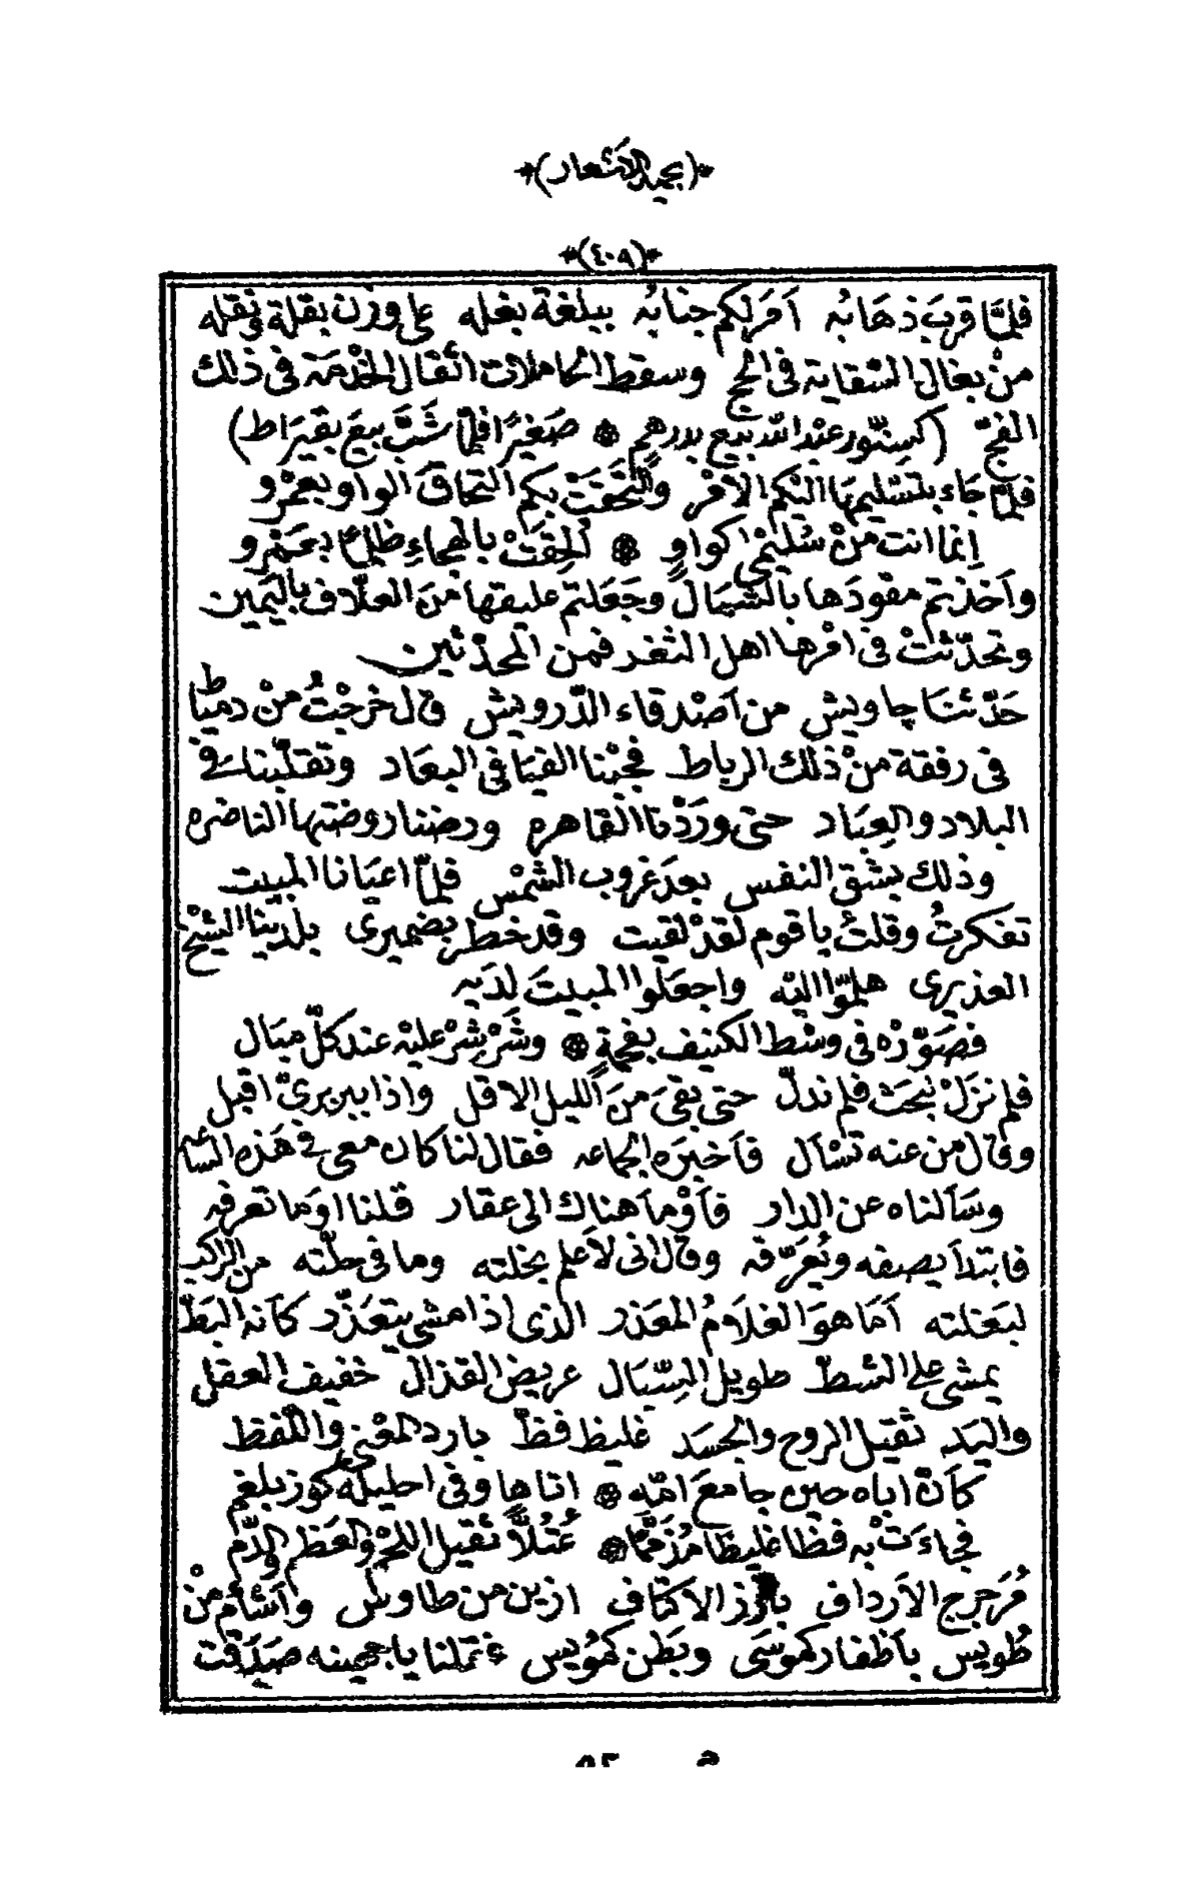 *(بجيد الاشعار)*
*(٤٠٩)*
فلمَّا قربَ ذهَابُه أمَرَ لكم جنابُه ببلغة بغله على وزن بقلة ونقله
منْ بغال السّقاية فى الحج وسقط الكاملات اثقال الخدْمة فى ذلك
الفجّ (كسِنّور عبْد الله بيع بدرهم ۞ صَغيرًا فلمّا شَبَّ بيعَ بقيرَاط)
فلمّا جَاء بتسْليمهَا اليْكم الامْر والتَحَقتْ بكم التحاقَ الواو بعمْرو
إنما انت منْ سُليْمى كواوٍ ۞ أُلحِقَتْ بالهجاءِ ظلمًا بعَمْرو
واَخذتم مقودَها بالشمَال وجَعَلتم عليقها منَ العلّاف باليَمين
وتحدّثتْ فى امْرها اهل الثغر فمن المحدّثين
حَدّثنَا چاويش من أصْدقاء الدّرويش قال خرجْتُ منْ دميَاط
فى رفقة منْ ذلك الرباط فجبْنا الفيَافى البعَاد وتقلّبنا فى
البلاد والعِبَاد حتى ورَدْنا القاهره ورضنا روضتها الناضره
وذلك بشق النفس بعدَ غروب الشمْس فلمّا اعيَانا المبيت
تفكرتُ وقلتُ يا قوم لقدْ لقيت وقد خطر بضميرى بلديّنا الشيْخ
العذيرى هلمّوا اليْه واجعَلوا المبيتَ لدَيه
فصَوّرْه فى وسْط الكنيف بفحمَةٍ ۞ وشَرْشِرْ عليْه عند كلّ مبَال
فلم نزَلْ نبحَث فلم ندلّ حتى بقىَ منَ الليل الاقل واذا ببربرىّ اقبل
وقال من عنه تسْأل فأخبرَه الجماعه فقال لنا كان معى فى هَذه السّاعه
وسَألناه عن الدار فأوْمأ هناك الى عقار قلنا اوَما تعرفه
فابتدأ يصفه ويُعَرّفه وقال انى لأعلم بخلته وما فى حلّته من الراكب
لبَغلته أمَا هوَ الغلَامُ المعَذر الذى إذا مشى يتعَذّر كأنه البَطّ
يمشى على الشطّ طويل السِّبَال عريض القذال خفيف العقل
واليَد ثقيل الروح والجسَد غليظ فظّ بارد المعْنى واللّفظ
كأنّ اباه حين جامعَ امّه ۞ اتاها وفى احليله كوز بلغم
فجاءَتْ به فظا غليظا مُذَمّمًا ۞ عُتُلًّا ثقيل اللحْم والعَظم والدّم
مُرَجرج الأرداف بارز الاكتاف ازين من طاوس واَشأم منْ
طُويس بأظفار كموسَى وبَطن كمُويس فتملنا يا جهينه صَدَقت